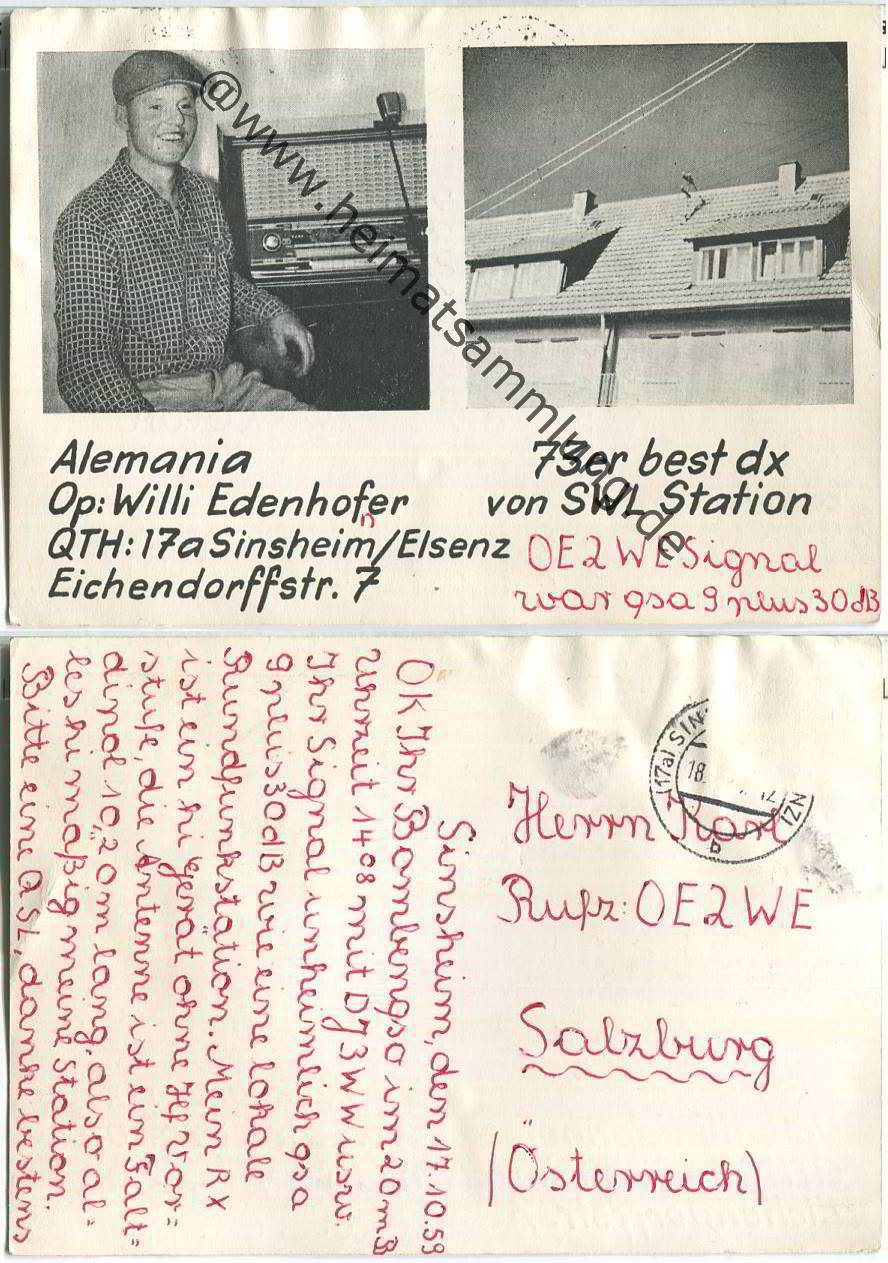 Alemania
Op: Willi Edenhofer
QTH: 17a Sinsheim/Elsenz
n
Eichendorffstr. 7
73er best dx
von SWL Station
OE2WE Signal
war qsa 9 plus 30 dB
@www.heimatsammlung.de
Sinsheim, den 17.10.59
OK Ihr Bombenqso im 20 mB
Uhrzeit 1408 mit DJ3WW usw.
Ihr Signal unheimlich qsa
9 plus 30 dB wie eine lokale
Rundfunkstation. Mein RX
ist ein hi Gerät ohne Hf vor=
stufe, die Antenne ist ein Falt=
dipol 10,20 m lang. also al=
les hi maßig meine Station.
Bitte eine QSL, danke bestens
(17a) SIN
18.
b
Herrn Karl
Rufz: OE2WE
Salzburg
(Österreich)